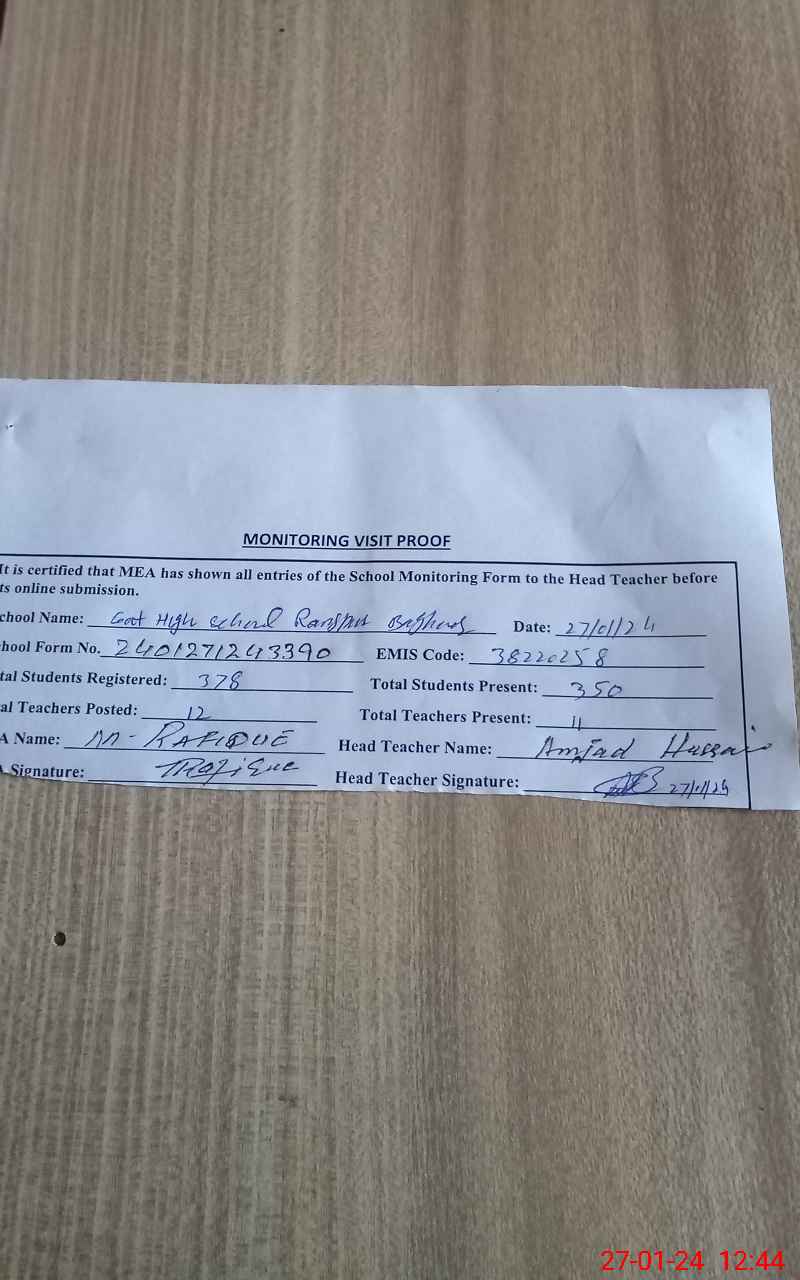 MONITORING VISIT PROOF
It is certified that MEA has shown all entries of the School Monitoring Form to the Head Teacher before
ts online submission.
chool Name: Govt High School Date: 27/01/24
hool Form No. 2401271243390 EMIS Code: 38220258
tal Students Registered: 378 Total Students Present: 350
al Teachers Posted: 12 Total Teachers Present: 11
A Name: M-RAFIQUE Head Teacher Name: Amjad Hussain
Signature: Head Teacher Signature: 27/01/24
27-01-24 12:44